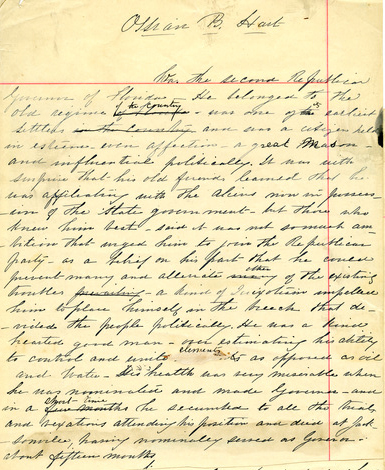 Ossian B. Hart
Was the second Republican
Governor of Florida - He belonged to the
old regime of the Country - was one of the earliest
settlers in the Country and was a citizen held
in esteem even affection - a great Mason
and influential politically. It was with
surprise that his old friends learned that he
was affiliating with the Aliens now in posses-
sion of the State government - but those who
knew him best said it was not so much am-
bition that urged him to join the Republican
Party - as a belief on his part that he could
prevent many and alleviate other of the existing
troubles prevailing - a kind of Quixotism impelled
him to place himself in the breach that de-
vided the people politically. He was a kind
hearted good man - over estimating his ability
to control and unite elements as opposed as oil
and water - His health was very miserable when
he was nominated and made Governor - and
in a short time few months he succumbed to all the trials
and vexations attending his position and died at Jack-
sonville, having nominally served as Governor -
about fifteen months